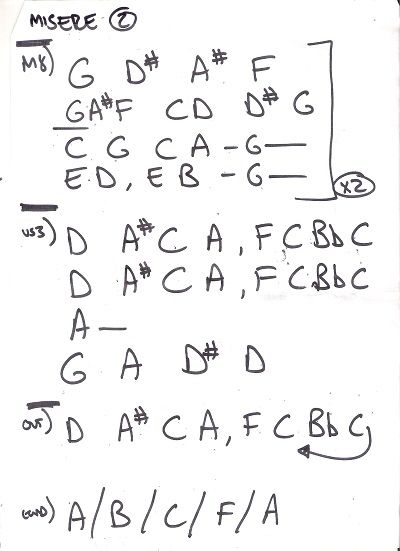 MISERE ②
M8) G D# A# F
GA#F C D D# G
C G C A - G —
E D, E B - G —
x2
VS3) D A# C A, F C Bb C
D A# C A, F C Bb C
A —
G A D# D
OUT) D A# C A, F C Bb C
(END) A/B/C/F/A